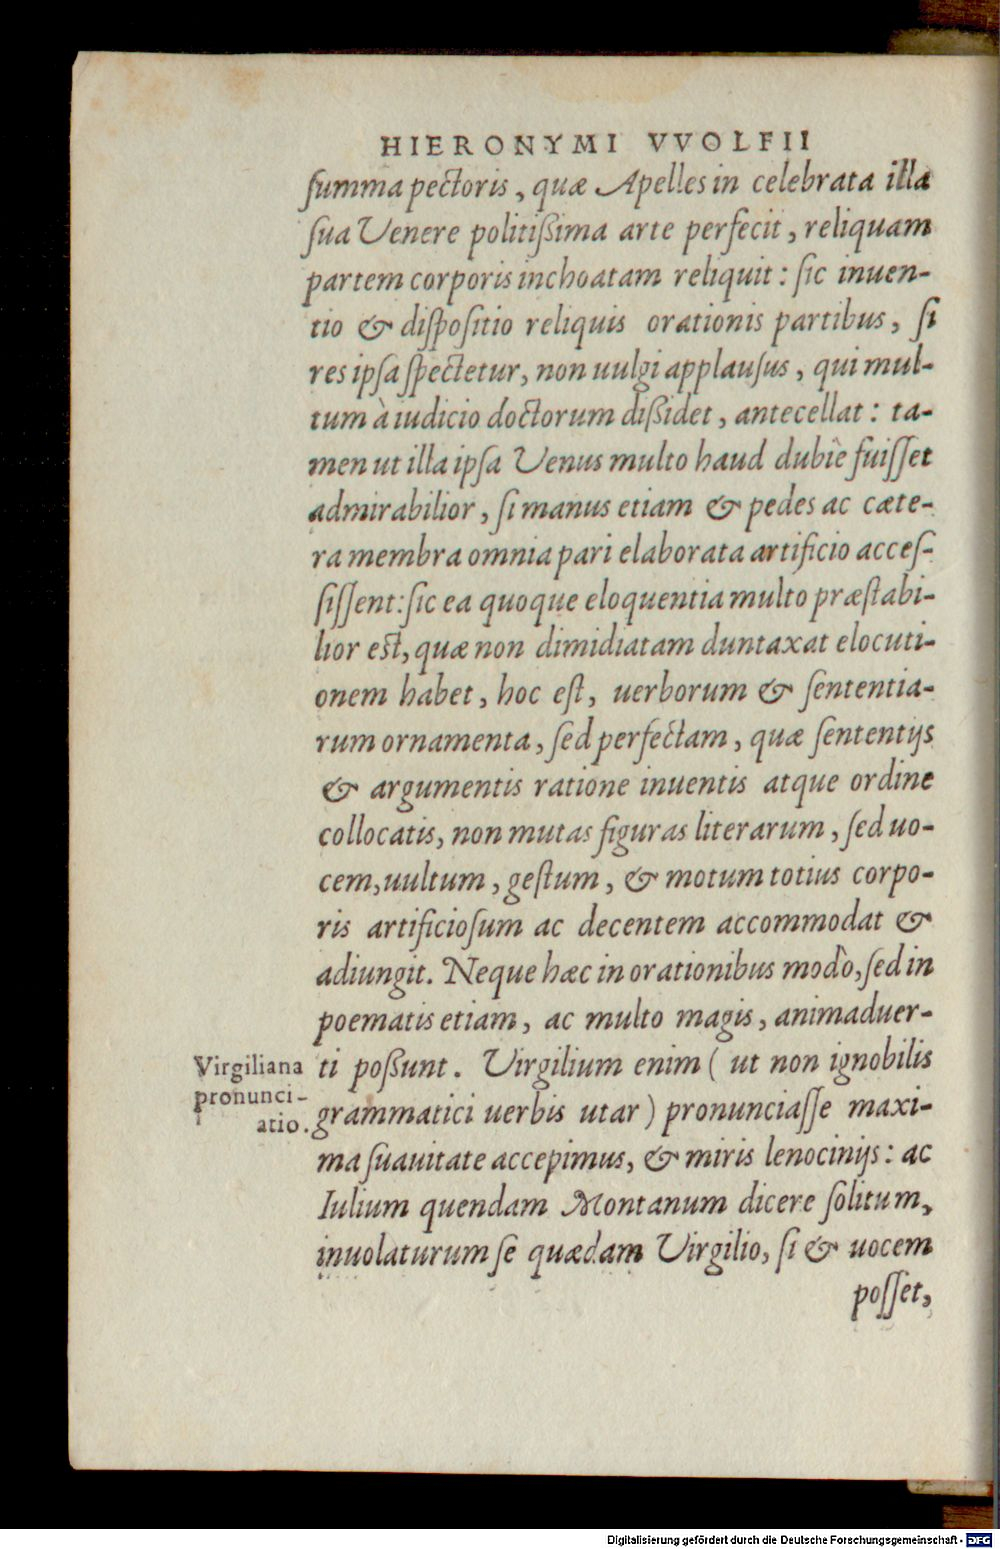 HIERONYMI VVOLFII
ſumma pectoris, quæ Apelles in celebrata illa
ſua Venere politißima arte perfecit, reliquam
partem corporis inchoatam reliquit: ſic inuen-
tio & diſpoſitio reliquis orationis partibus, ſi
res ipſa ſpectetur, non uulgi applauſus, qui mul-
tum à iudicio doctorum dißidet, antecellat: ta-
men ut illa ipſa Venus multo haud dubiè fuiſſet
admirabilior, ſi manus etiam & pedes ac cæte-
ra membra omnia pari elaborata artificio acceſ-
ſiſſent: ſic ea quoque eloquentia multo præſtabi-
lior eſt, quæ non dimidiatam duntaxat elocuti-
onem habet, hoc eſt, uerborum & ſententia-
rum ornamenta, ſed perfectam, quæ ſententijs
& argumentis ratione inuentis atque ordine
collocatis, non mutas figuras literarum, ſed uo-
cem, uultum, geſtum, & motum totius corpo-
ris artificioſum ac decentem accommodat &
adiungit. Neque hæc in orationibus modò, ſed in
poematis etiam, ac multo magis, animaduer-
Virgiliana
pronunci-
atio.
ti poßunt. Virgilium enim ( ut non ignobilis
grammatici uerbis utar ) pronunciaſſe maxi-
ma ſuauitate accepimus, & miris lenocinijs: ac
Iulium quendam Montanum dicere ſolitum,
inuolaturum ſe quædam Virgilio, ſi & uocem
poſſet,
Digitalisierung gefördert durch die Deutsche Forschungsgemeinschaft - DFG